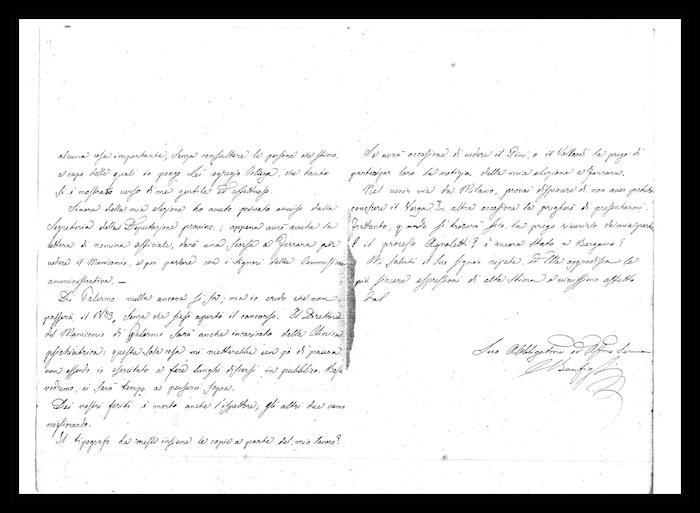 alcuna cosa importante, senza consultare le persone che stimo,
a capo delle quali io pongo Lei egregio Collega, che tanto
si è mostrato verso di me gentile ed affettuoso.
Sinora della mia elezione ho avuto privato avviso dalla
Segreteria della Deputazione provinc.; appena avrò avuta la
lettera di nomina officiale, darò una scorsa a Ferrara per
vedere il Manicomio, e per parlare con i Signori della Commissione
amministrativa. —
Di Palermo nulla ancora si sa; ma io credo che non
passerà il 1873, senza che siasi aperto il concorso. Il Direttore
del Manicomio di Palermo sarà anche incaricato della Clinica
psichiatrica: questa sola cosa mi metterebbe un pò di paura,
non essendo io esercitato a fare lunghi discorsi in pubblico. Ma
vedremo, ci sarà tempo a pensarci sopra.
Dei nostri feriti è morto anche l'ispettore; gli altri due vanno
migliorando.
Il tipografo ha messe insieme le copie a parte del mio lavoro?
Se avrà occasione di vedere il Pini, o il Vallardi la prego di
partecipar loro la notizia della mia elezione a Ferrara.
Nel venir via da Milano, provai dispiacere di non aver potuto
conoscere il Verga. In altra occasione la pregherò di presentarmi.
Frattanto, quando si troverà seco, la prego riverirlo da mia parte.
E il processo Agnoletti? è ancora stato a Bergamo?
Mi saluti il Suo Signor nipote, ed Ella aggradisca le
più sincere espressioni di alta stima e vivissimo affetto
dal
Suo Obbligatissimo ed Affmo Servo
C Bonfigli